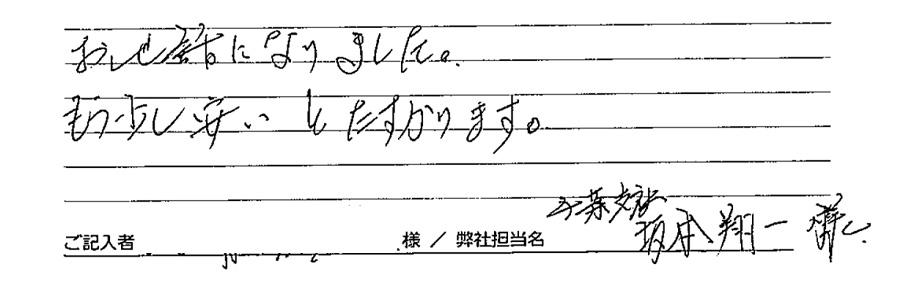 おせ話になりました。
もう少し安いとたすかります。
千葉支社
ご記入者 様 / 弊社担当名 坂本翔一 様